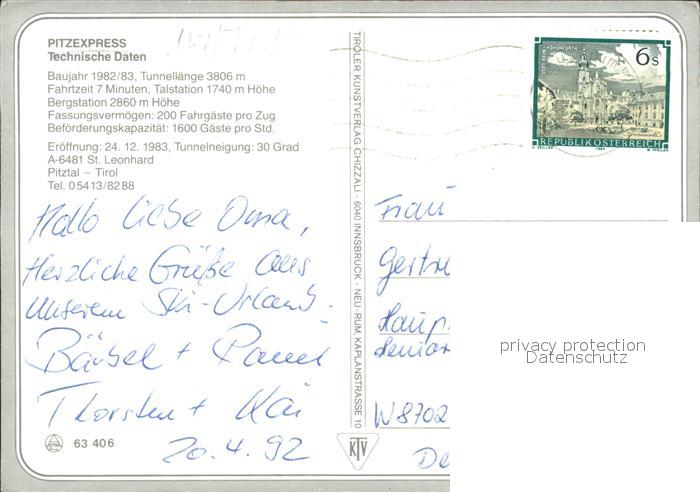 PITZEXPRESS
Technische Daten
Baujahr 1982/83, Tunnellänge 3806 m
Fahrtzeit 7 Minuten, Talstation 1740 m Höhe
Bergstation 2860 m Höhe
Fassungsvermögen: 200 Fahrgäste pro Zug
Beförderungskapazität: 1600 Gäste pro Std.
Eröffnung: 24. 12. 1983, Tunnelneigung: 30 Grad
A-6481 St. Leonhard
Pitztal – Tirol
Tel. 05413/8288
Hallo liebe Oma,
Herzliche Grüße aus
unserem Ski-Urlaub.
Bärbel +
Thorsten + Kai
20.4.92
63 406
TIROLER KUNSTVERLAG CHIZZALI · 6040 INNSBRUCK - NEU-RUM, KAPLANSTRASSE 10
KTV
STIFT REIN-HOHENFURTH
6 S
REPUBLIK ÖSTERREICH
Frau
Gertru
Haup
Senior
W 8702
De
privacy protection
Datenschutz